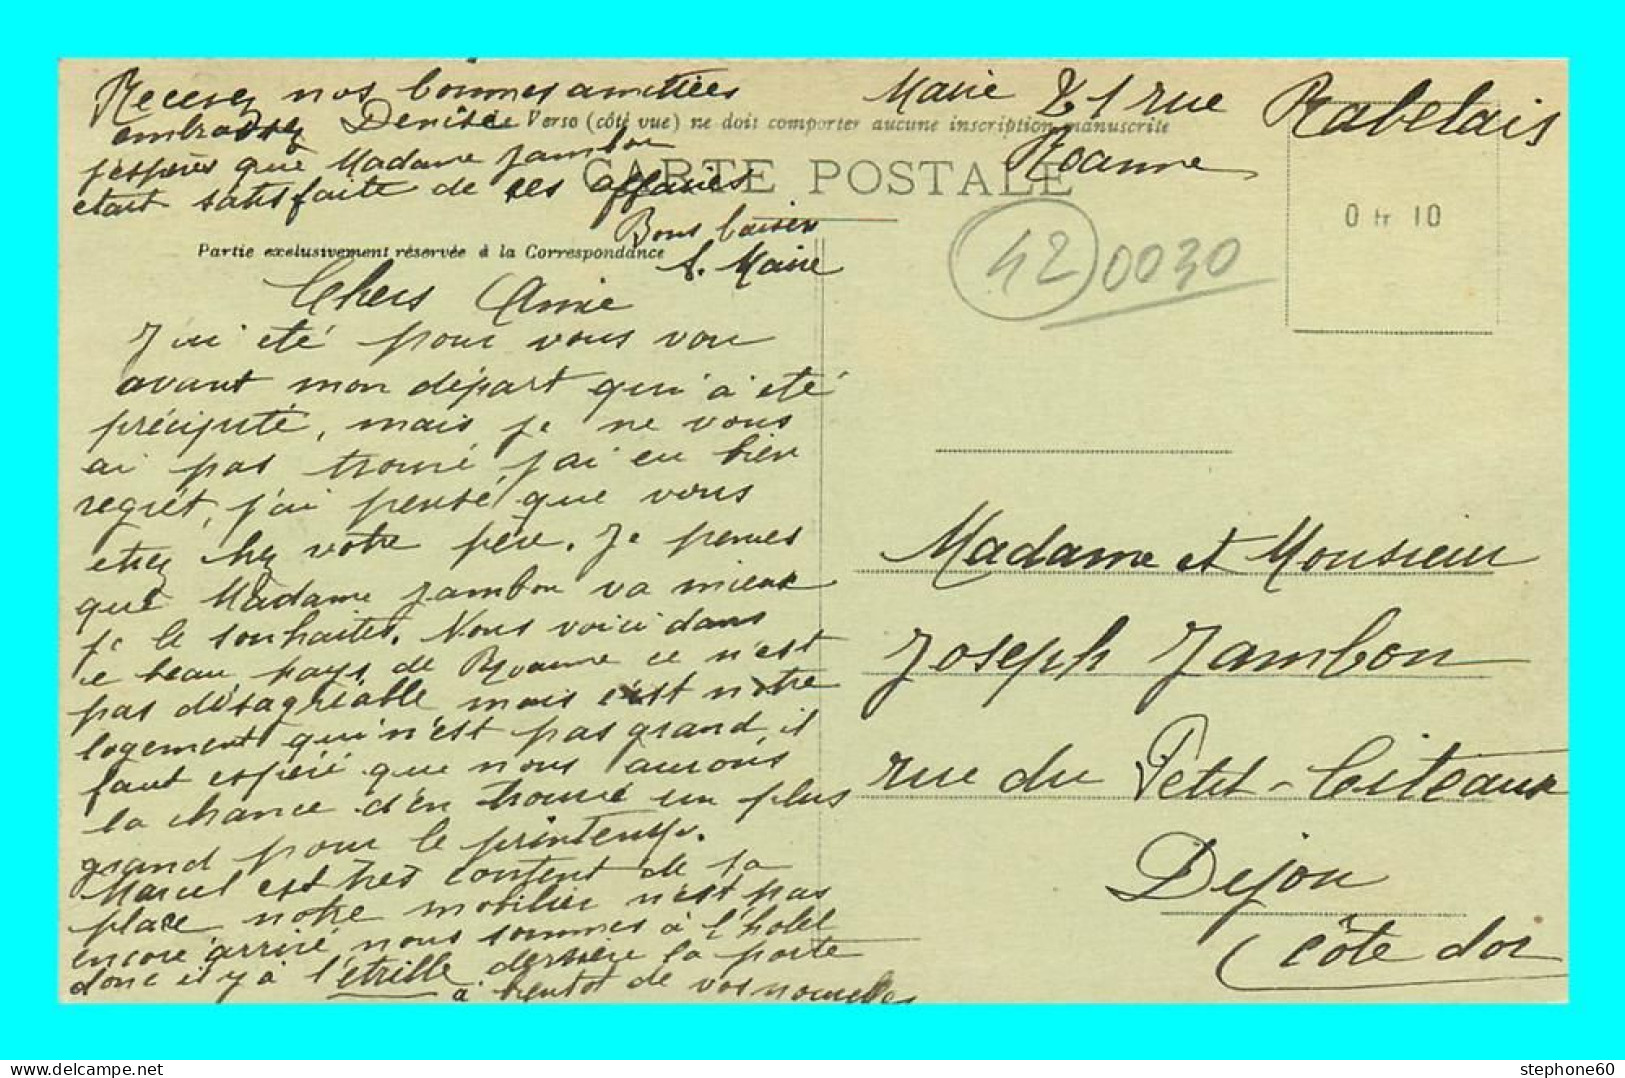 Recevez nos bonnes amitiées
embrassez Denise
Verso (côté vue) ne doit comporter aucune inscription manuscrite
j'espères que Madame Jambon
CARTE POSTALE
etait satisfaite de ses affaires
Bons baisers
A. Marie
Marie 21 rue Rabelais
Roanne
0 fr 10
42 0030
Partie exclusivement réservée à la Correspondance
Chers Amie
J'ai été pour vous voir
avant mon départ qui à été
précipité, mais je ne vous
ai pas trouvé j'ai eu bien
regrét, j'ai pensé que vous
etiez chez votre père. Je penses
que Madame Jambon va mieux
je le souhaites. Nous voici dans
ce beau pays de Roanne ce n'est
pas désagréable mais c'est notre
logement qui n'est pas grand, il
faut espéré que nous aurons
la chance d'en trouvé un plus
grand pour le printemps.
Marcel est très content de sa
place notre mobilier n'est pas
encore arrivé, nous sommes à l'hotel
donc il y à l'étrille derrière la porte
à bientot de vos nouvelles
Madame et Monsieur
Joseph Jambon
rue du Petit-Citeaux
Dijon
Côte d'or
stephone60